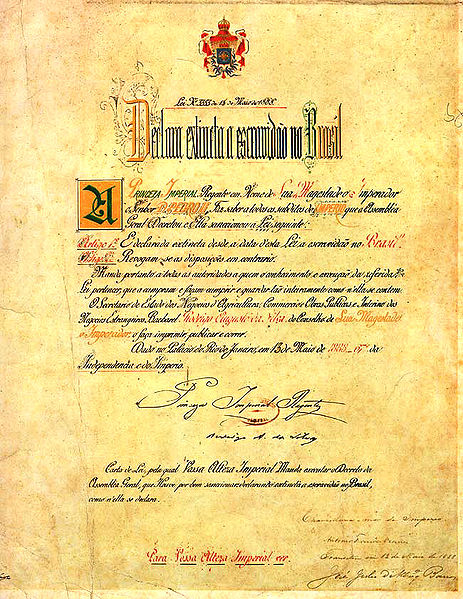 Lei Nº 3353 de 13 de Maio de 1888.
Declara extincta a escravidão no Brasil
A PRINCEZA IMPERIAL Regente em Nome de Sua Magestade o Imperador
o Senhor D. PEDRO II, Faz saber a todos os subditos do IMPERIO que a Assembléa
Geral Decretou e Ella sanccionou a Lei seguinte:
Artigo 1º: É declarada extincta desde a data desta Lei a escravidão no Brasil
Artigo 2º: Revogam-se as disposições em contrario.
Manda portanto a todas as autoridades a quem o conhecimento e execução da referida
Lei pertencer, que a cumpram e façam cumprir e guardar tão inteiramente como n'ella se contem.
O Secretario de Estado dos Negocios d'Agricultura, Commercio e Obras Publicas e Interino dos
Negocios Estrangeiros, Bacharel Rodrigo Augusto da Silva, do Conselho de Sua Magestade
o Imperador, o faça imprimir, publicar e correr.
Dado no Palacio do Rio de Janeiro, em 13 de Maio de 1888, 67º da
Independencia e do Imperio.
Princeza Imperial Regente
Rodrigo A. da Silva
Carta de Lei, pela qual Vossa Alteza Imperial Manda executar o Decreto da
Assembléa Geral, que Houve por bem sanccionar, declarando extincta a escravidão no Brasil,
como n'ella se declara.
Chancellaria-mór do Imperio
Antonio Ferreira Vianna
Transitou em 13 de Maio de 1888
José Julio de
Para Vossa Alteza Imperial ver.